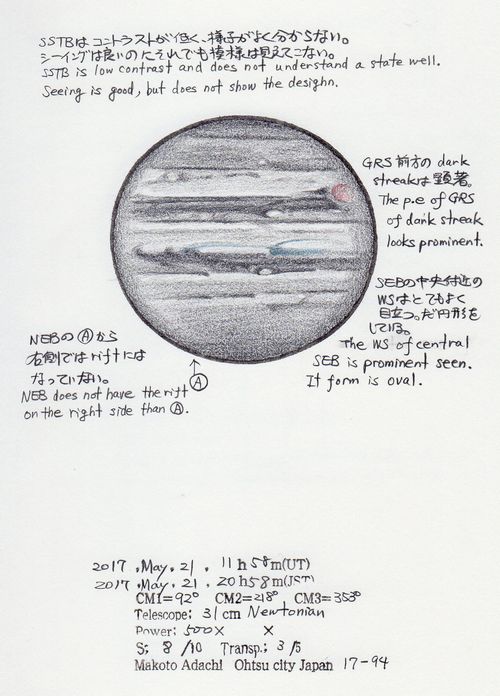 SSTBは コントラストが低く、様子がよく分からない。
シーイングは良いのにそれでも模様は見えてこない。
SSTB is low contrast and does not understand a state well.
Seeing is good, but does not show the desighn.
GRS 前方の dark
streakは 顕著。
The p.e of GRS
of dark streak
looks prominent.
SEBの中央付近の
WSはとてもよく
目立つ。だ円形を
している。
The WS of central
SEB is prominent seen.
It form is oval.
NEBの Ⓐ から
右側では riftには
なっていない。
NEB does not have the rift
on the right side than Ⓐ.
Ⓐ
2017 .May. 21 . 11 h 58 m(UT)
2017 .May. 21 . 20 h 58 m(JST)
CM1= 92° CM2= 218° CM3= 353°
Telescope; 31 cm Newtonian
Power; 500 X X
S; 8 /10 Transp.; 3 /5
Makoto Adachi Ohtsu city Japan 17-94